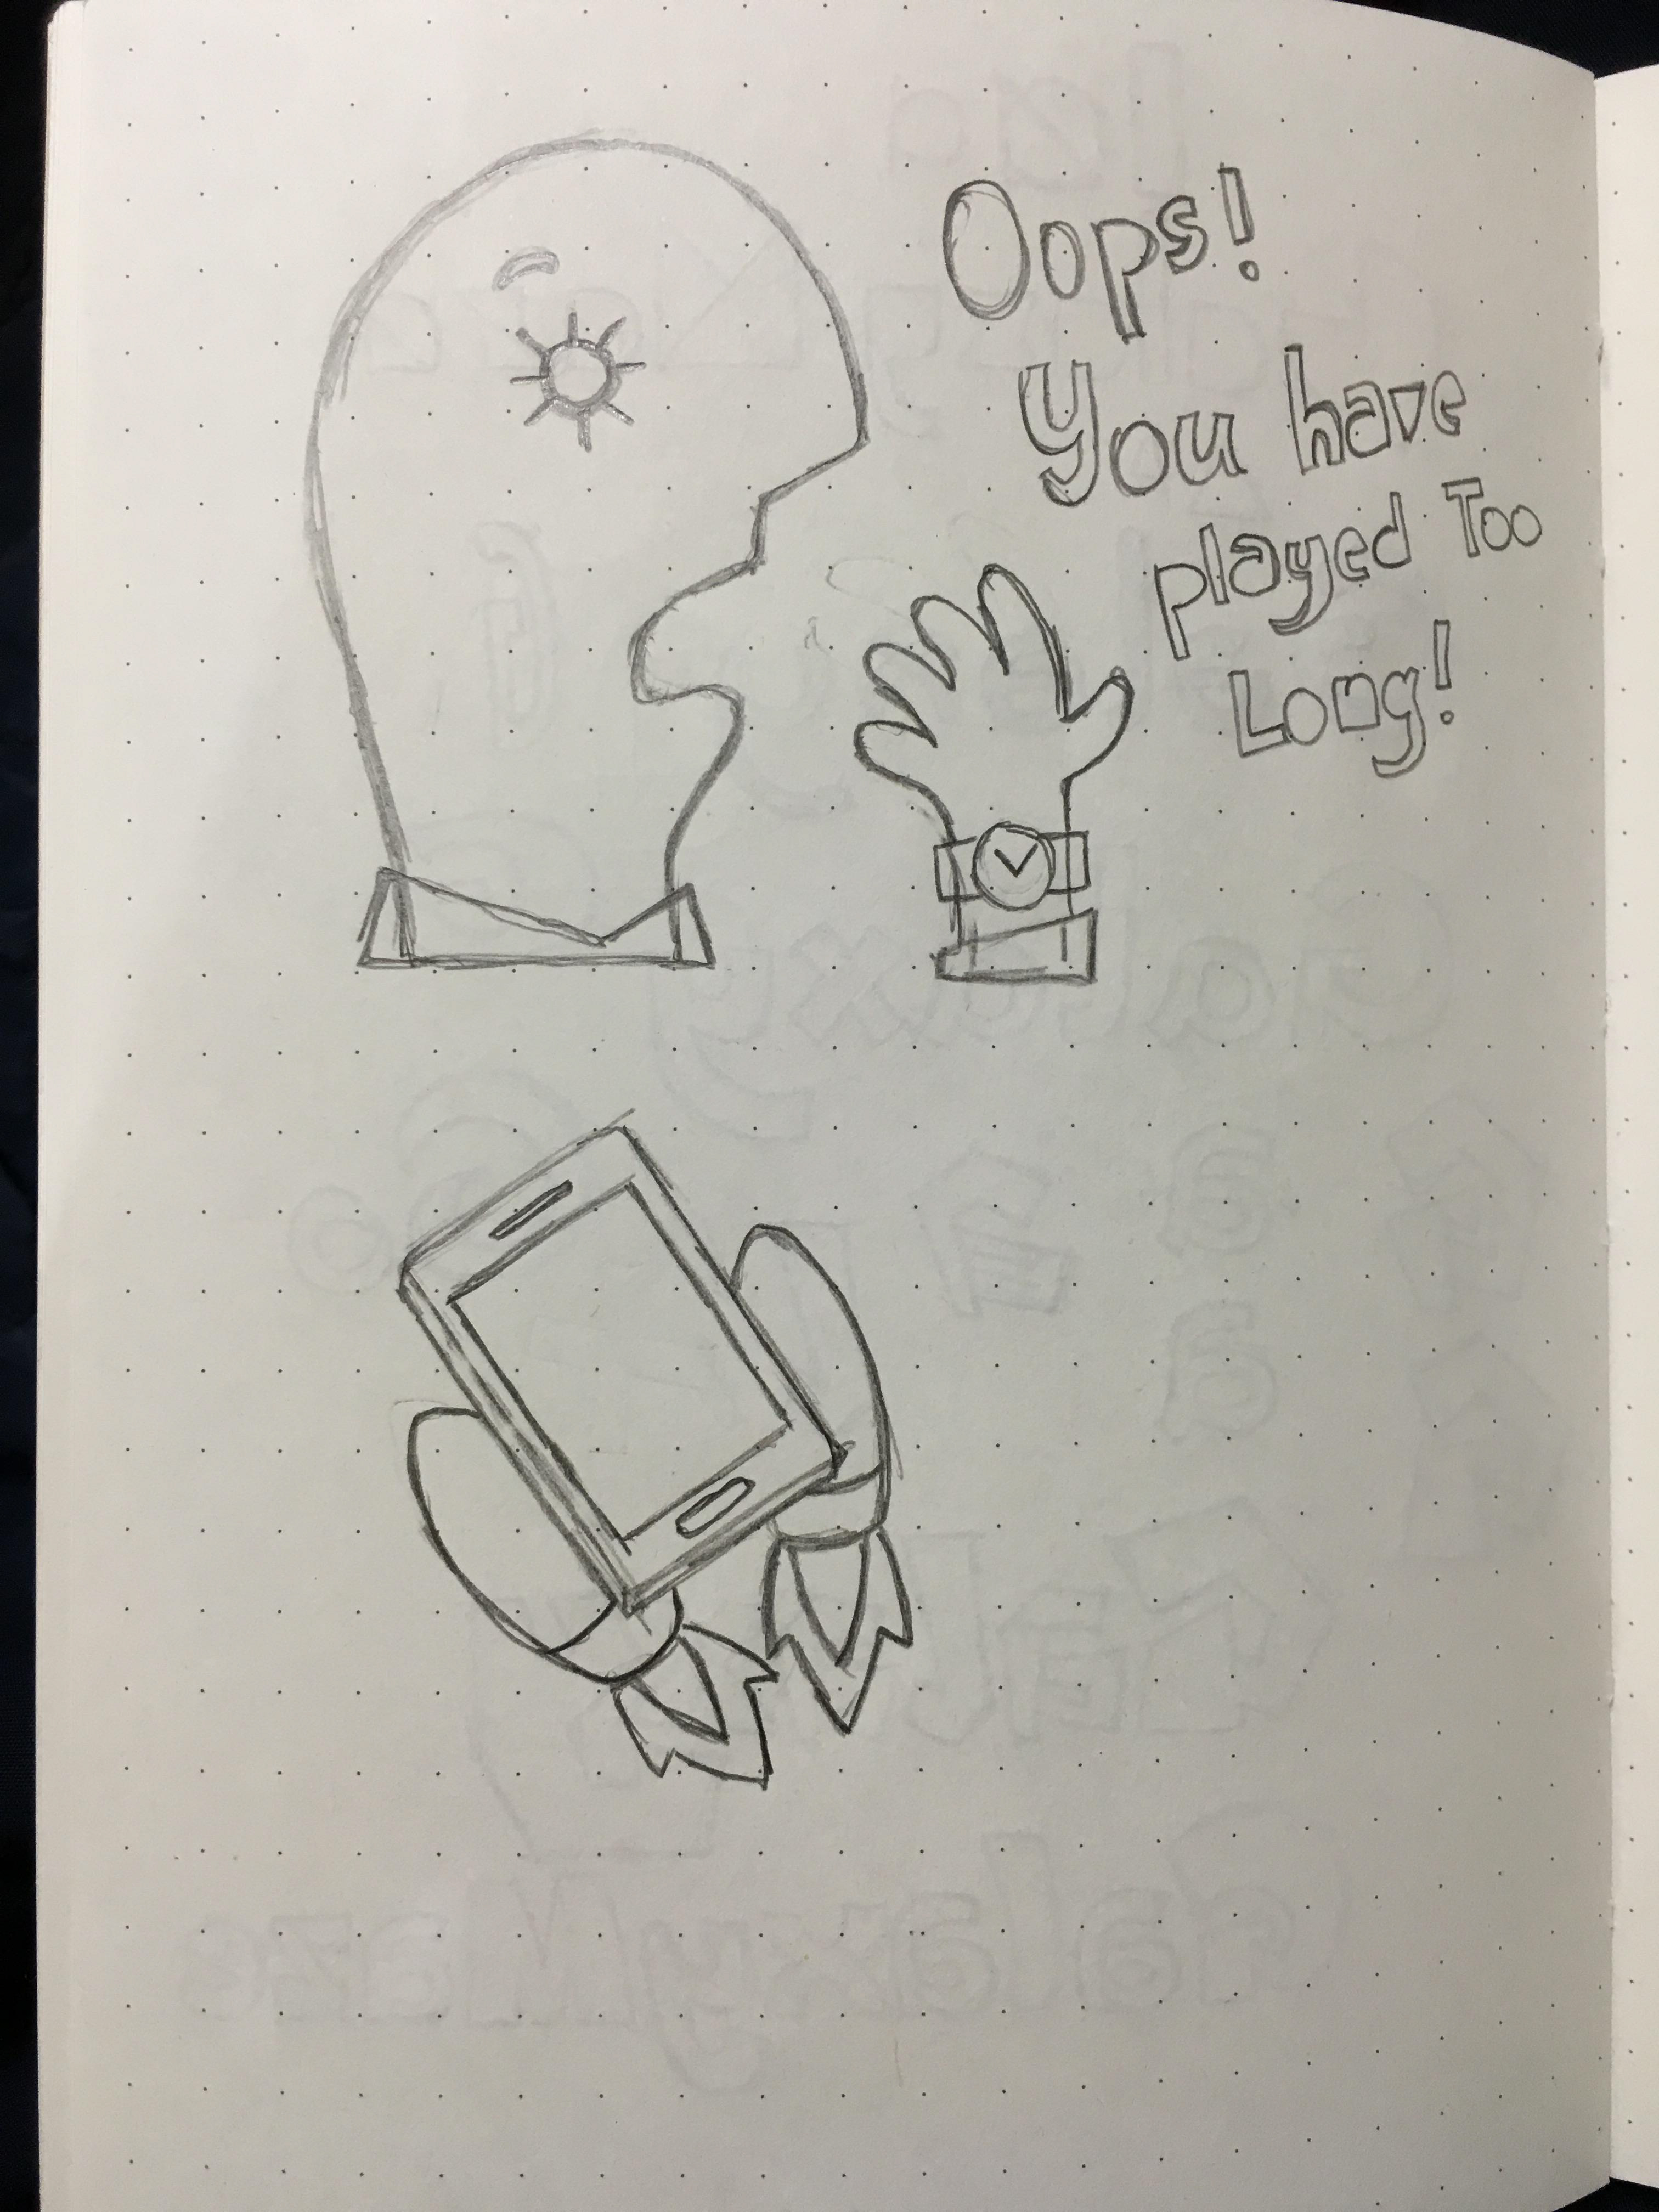 Oops!
You have
played Too
Long!